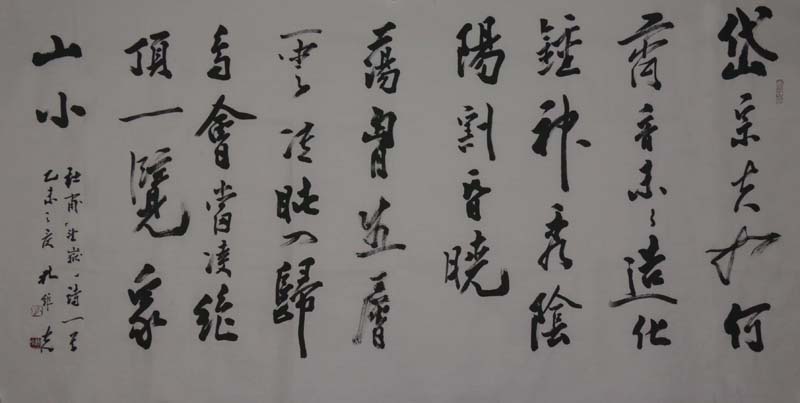 岱宗夫如何
齊青未了造化
鍾神秀陰
陽割昏曉
蕩胸生層
雲決眥入歸
鳥會當凌絕
頂一覽衆
山小
杜甫望嶽詩一首
乙未之夏孔維克